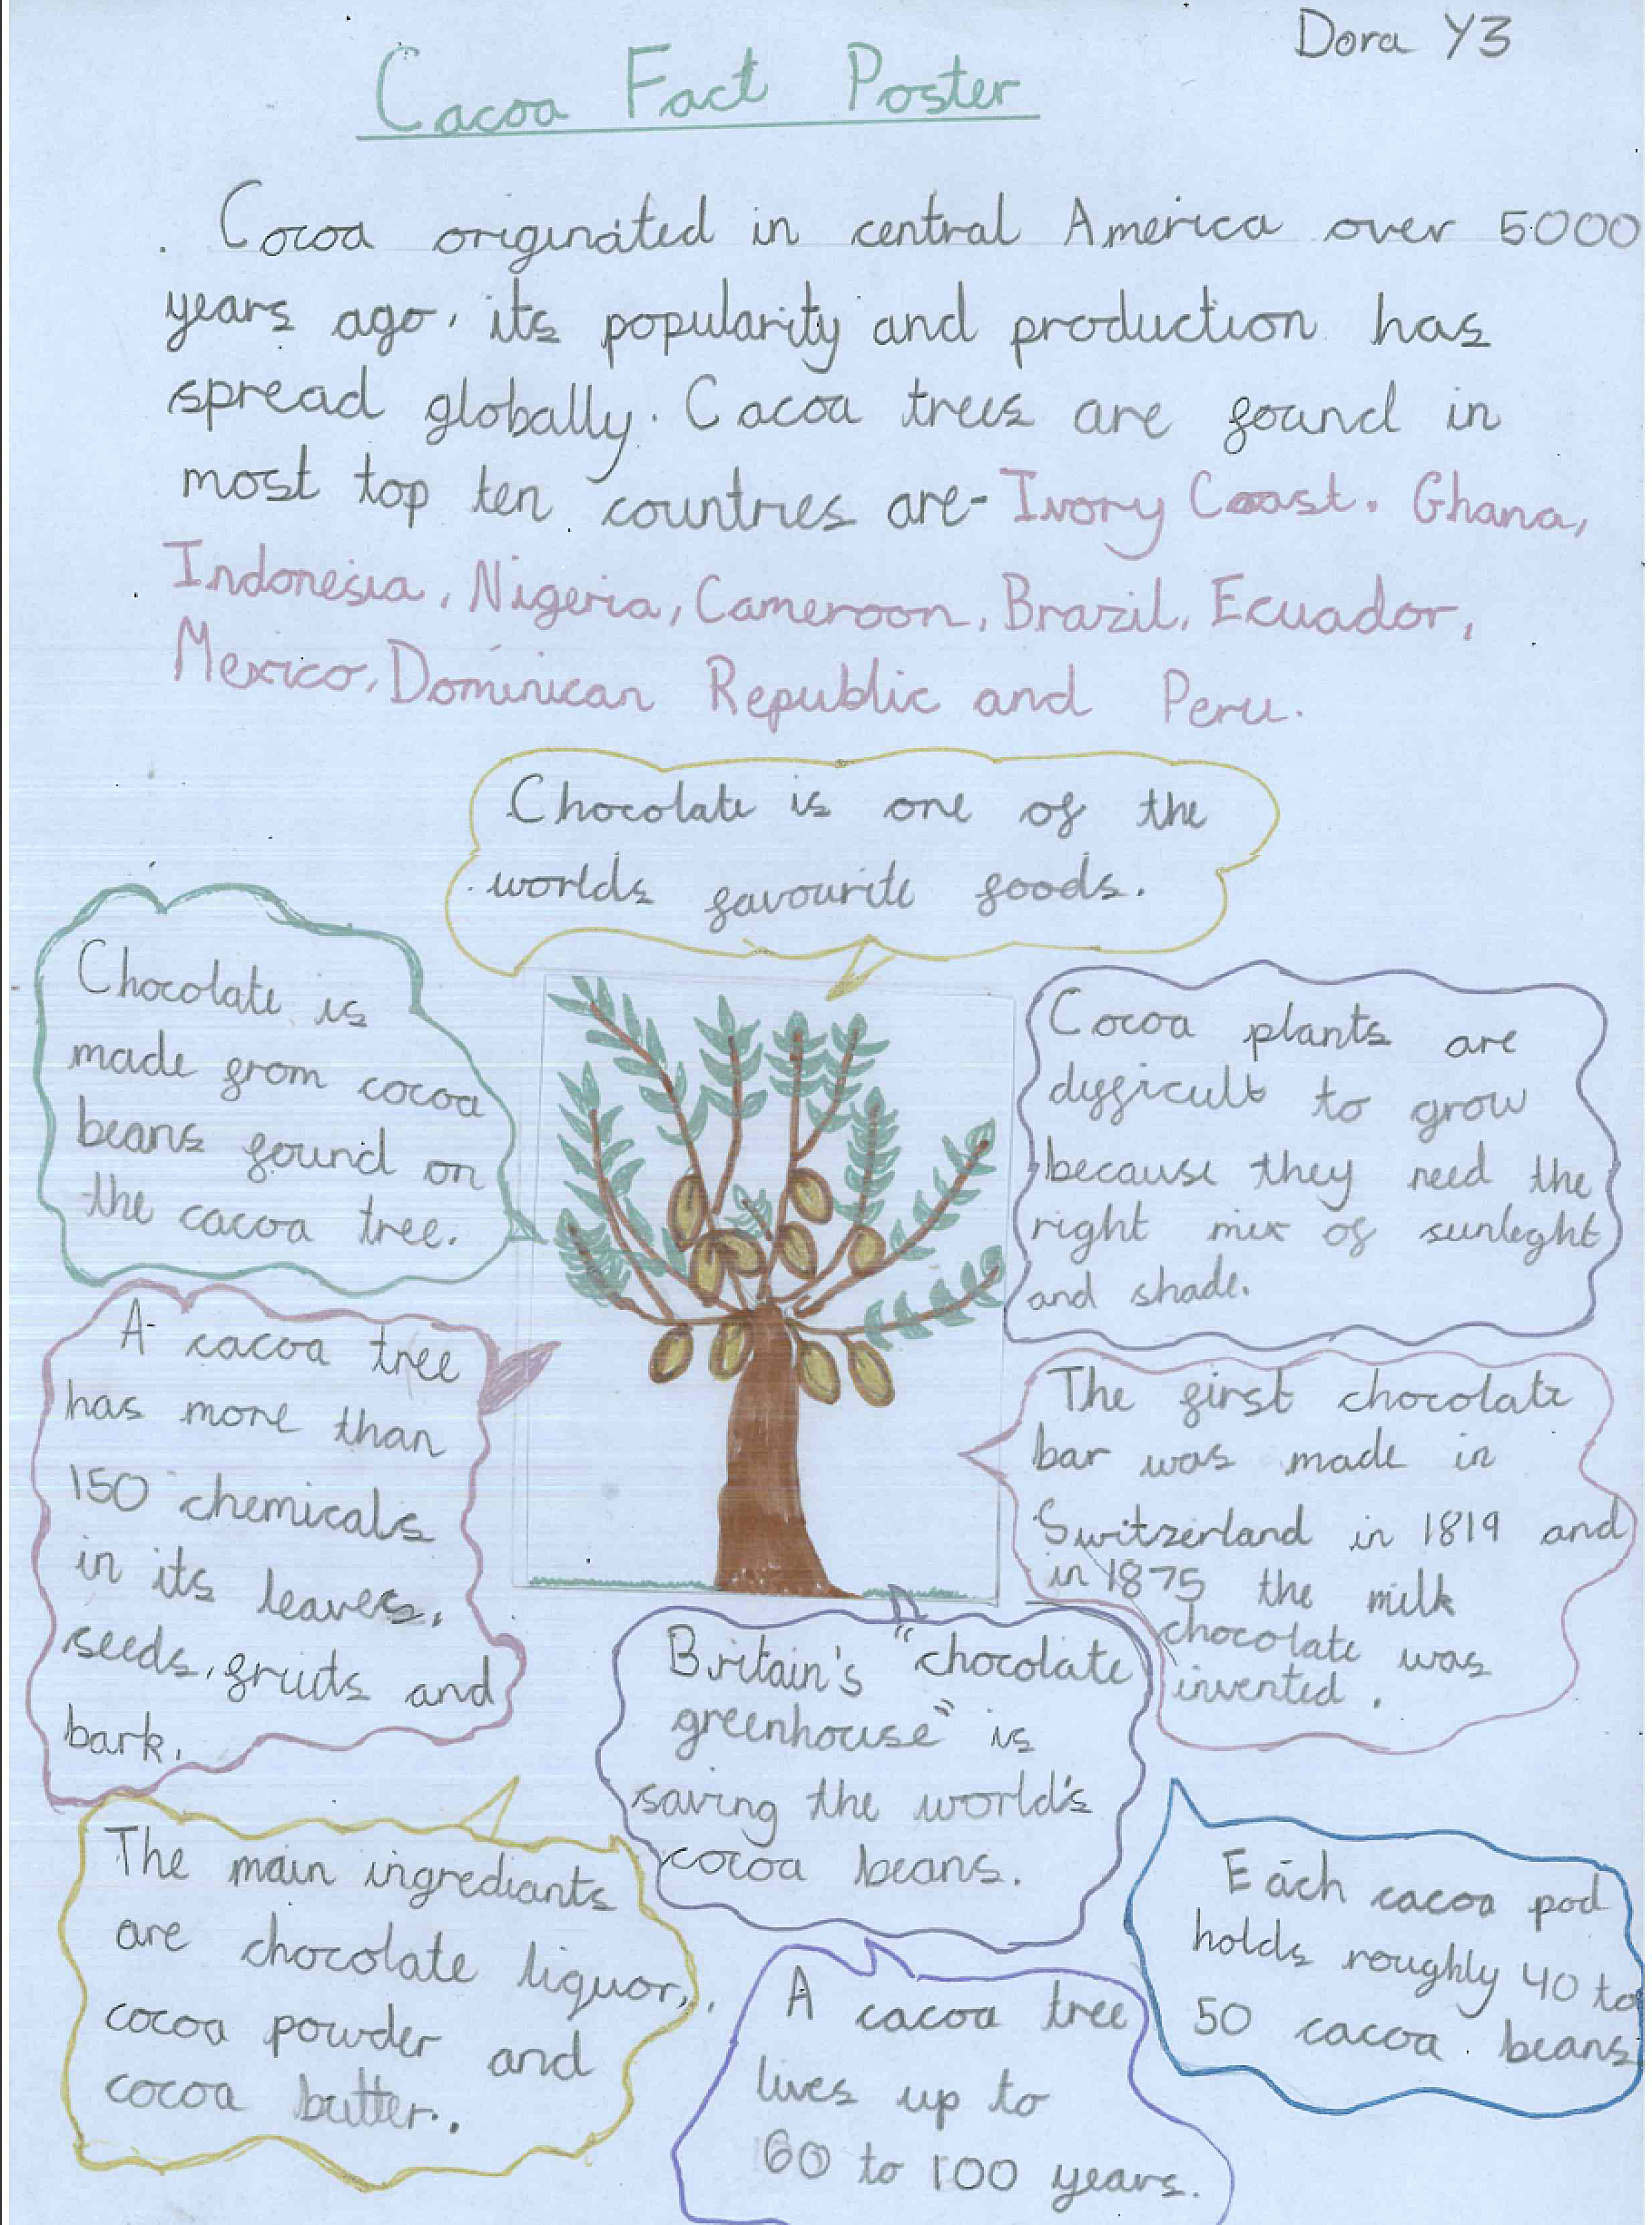 Dora Y3
Cacoa Fact Poster
Cocoa originated in central America over 5000
years ago, its popularity and production has
spread globally. Cacoa trees are found in
most top ten countries are- Ivory Coast. Ghana,
Indonesia, Nigeria, Cameroon, Brazil, Ecuador,
Mexico, Dominican Republic and Peru.
Chocolate is one of the
worlds favourite foods.
Chocolate is
made from cocoa
beans found on
the cacoa tree.
Cocoa plants are
difficult to grow
because they need the
right mix of sunleght
and shade.
A cacoa tree
has more than
150 chemicals
in its leaves,
seeds, fruits and
bark.
The first chocolate
bar was made in
Switzerland in 1819 and
in 1875 the milk
chocolate was
invented.
Britain's "chocolate
greenhouse" is
saving the world's
cocoa beans.
The main ingrediants
are chocolate liquor,
cocoa powder and
cocoa butter.
Each cacoa pod
holds roughly 40 to
50 cacoa beans
A cacoa tree
lives up to
60 to 100 years.